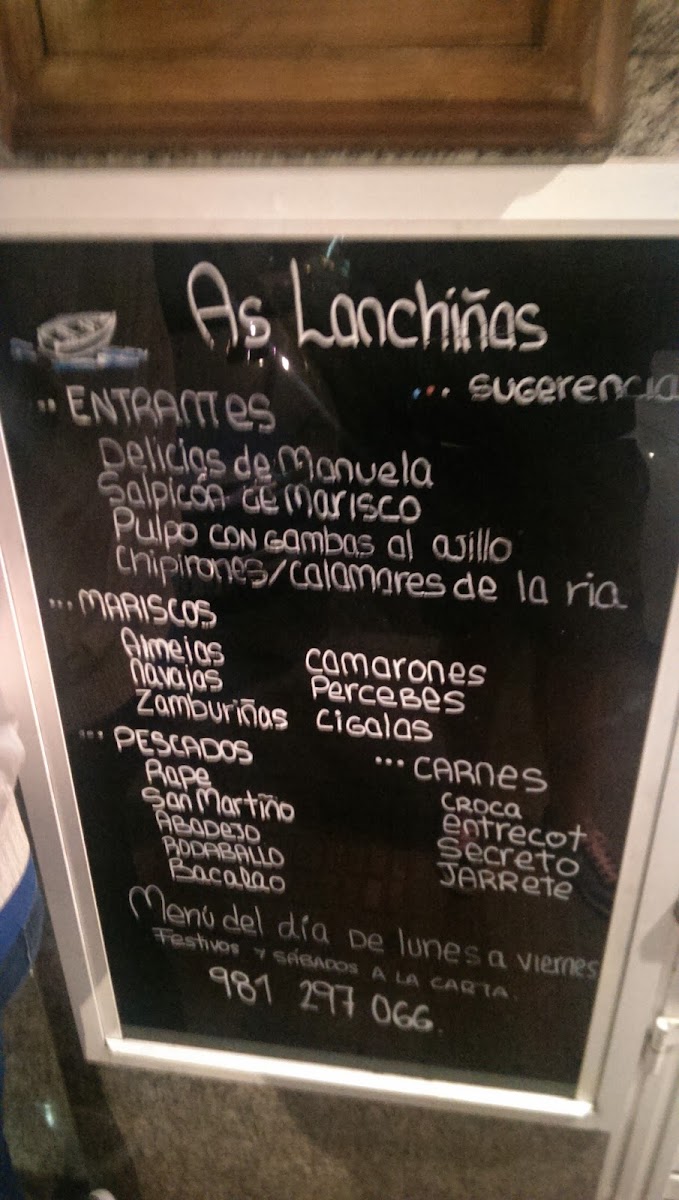 As Lanchiñas
... SUGERENCIA
.. ENTRANTES
Delicias de Manuela
Salpicón de MARISCO
Pulpo con Gambas al ajillo
Chipirones/calamares de la ria
... MARISCOS
Almejas camarones
Navajas Percebes
Zamburiñas Cigalas
... PESCADOS
Rape
San Martiño
ABADEJO
RODABALLO
Bacalao
... CARNES
CROCA
entrecot
Secreto
JARRete
Menú del día De lunes a viernes
Festivos y SÁBADOS A LA CARTA.
981 297 066.